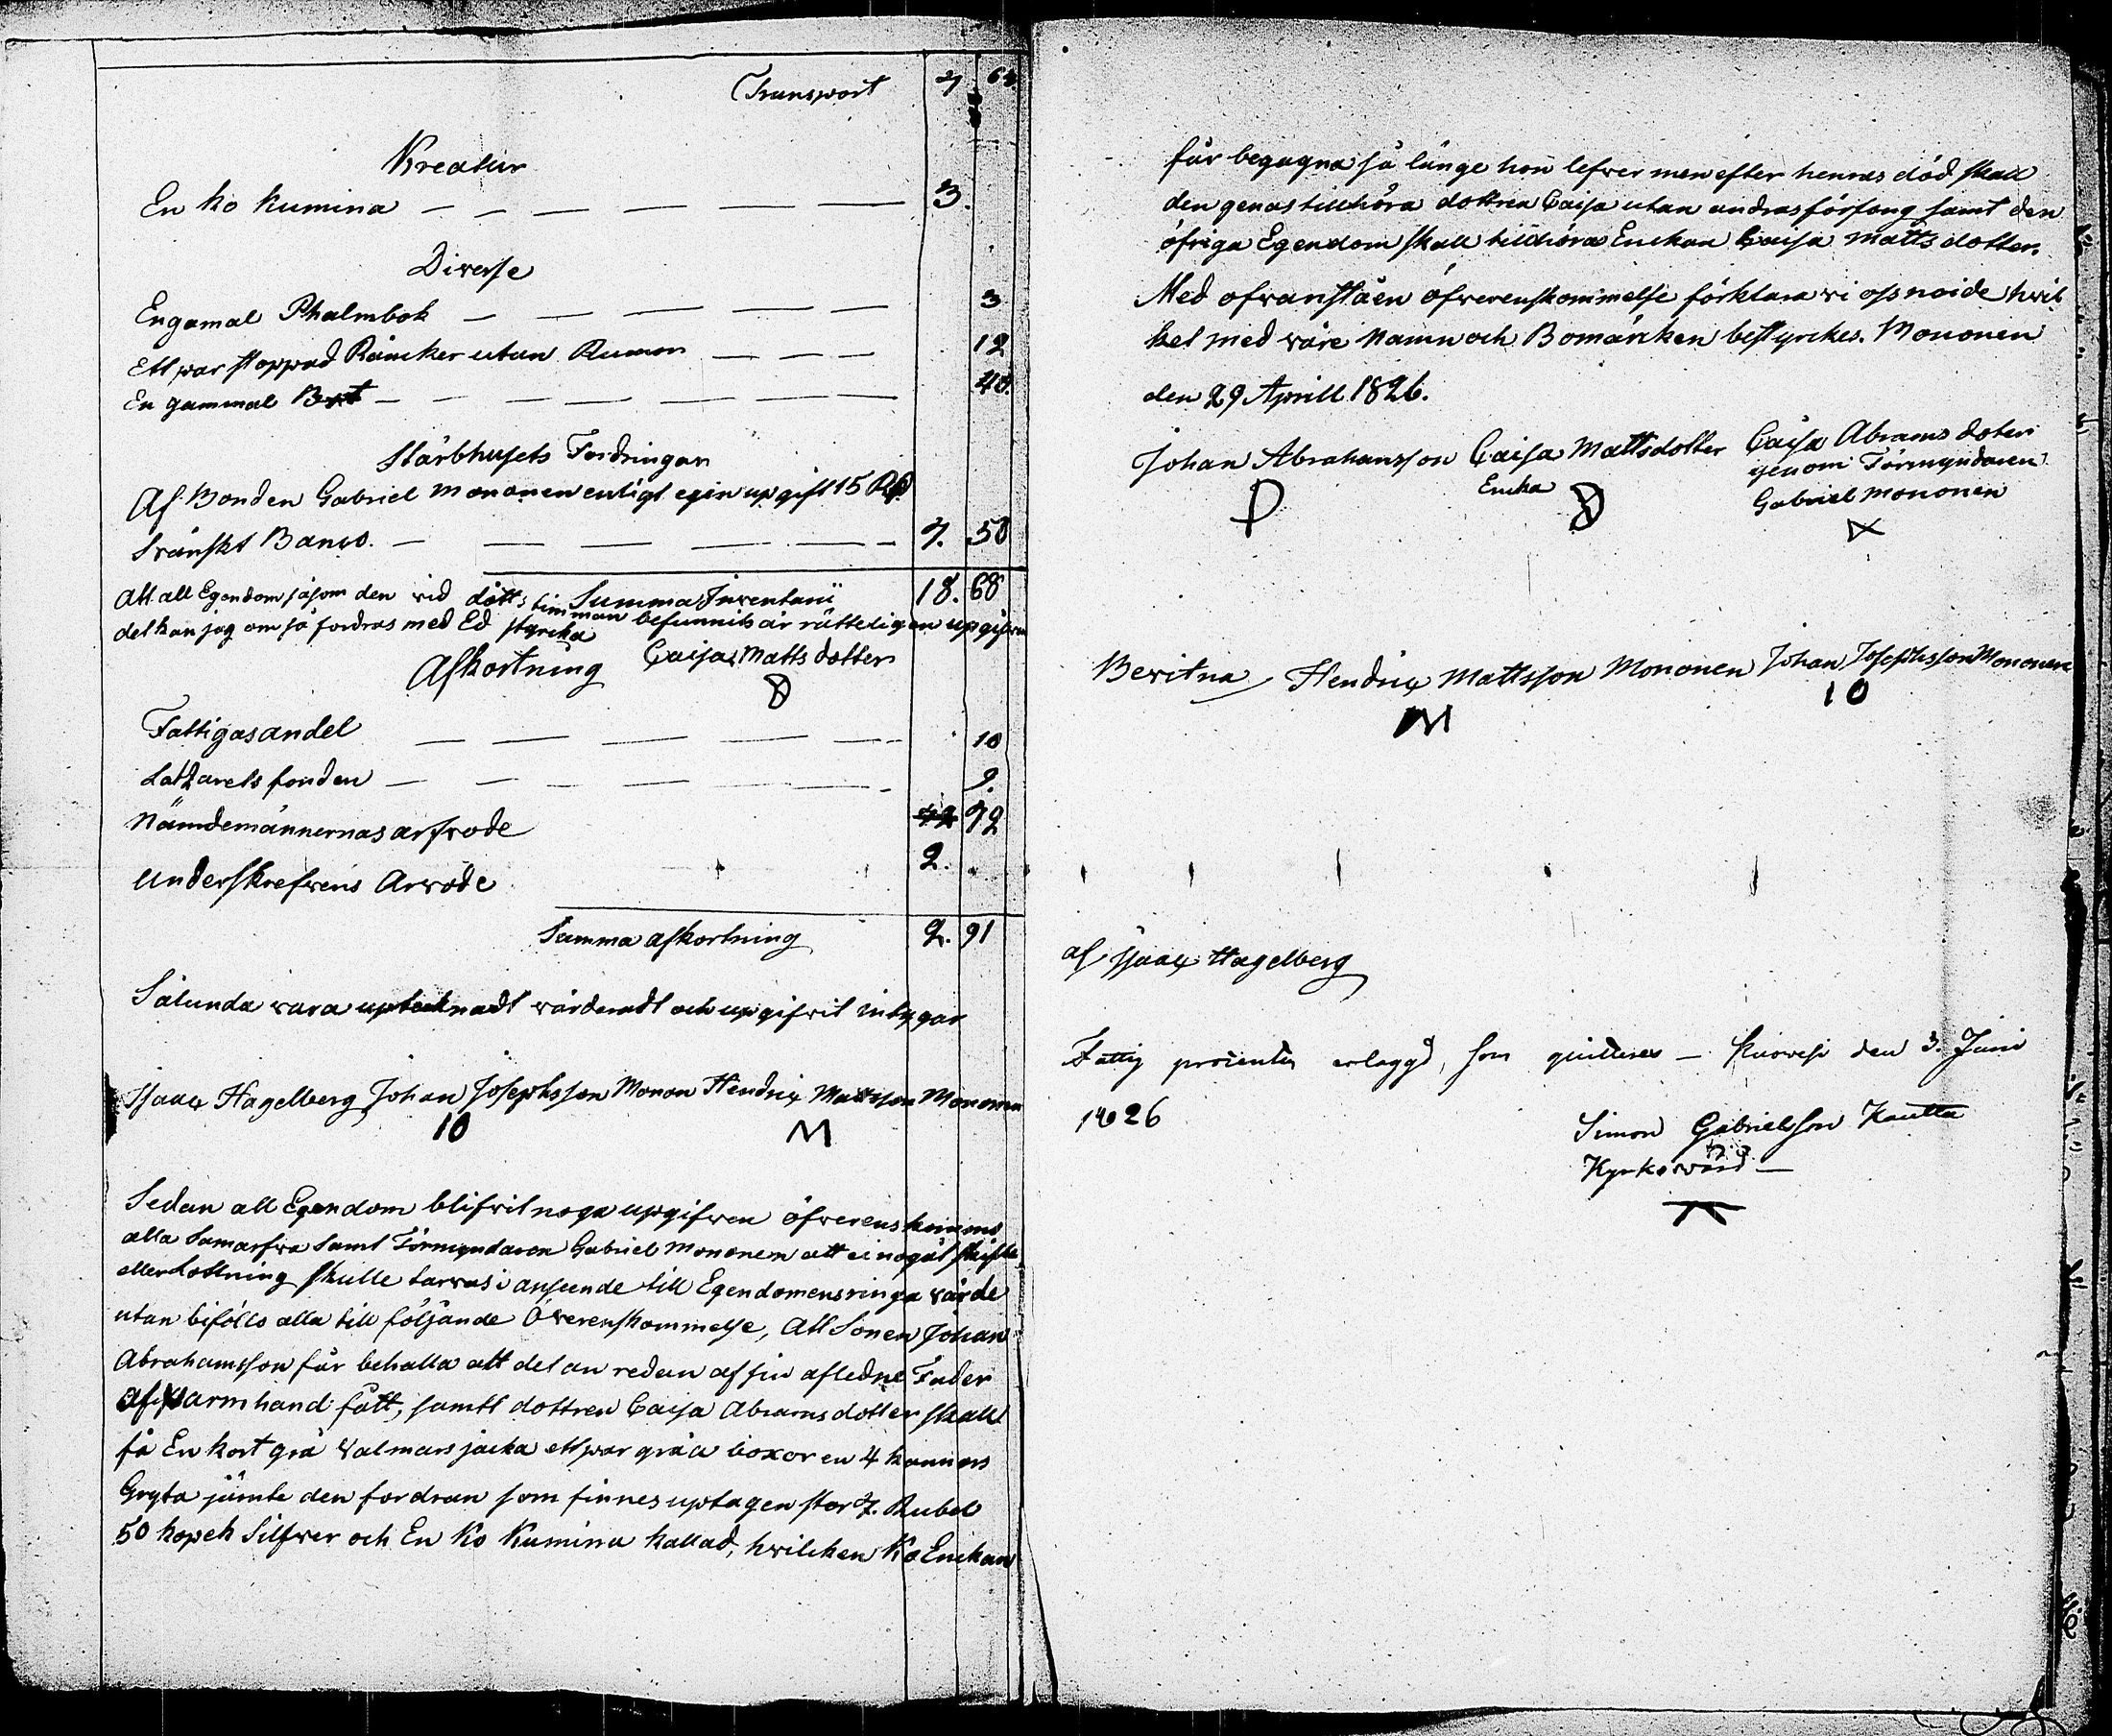 Transport 7 64
Kreatur
En ko Kumina 3.
Diverse
En gamal Phalmbok 3
Ett par stoppad Räncker utan Rumor 12
En gammal Båt 40.
Stärbhusets Fordringar
Af Bonden Gabriel Mononen enligt egin upgift 15 Rd
Svänskt Banco. 7. 50
Att all Egendom såsom den vid dötts timman befunnits är rätteligen upgifven
Summa Inventarii 18. 68
det kan jag om så fordras med Ed styrcka
Afkortning Caisa Matts dotter
Fattigas andel 10
Latzarets fonden 9.
Nämdemännernas arfvode 72
Underskrefvens Arvode 2.
Summa afkortning 2. 91
Sålunda vara uptecknadt värderadt och upgifvit intygar
Isaac Hagelberg Johan Josephsson Monon Hendrix Mattsson Mononen
10 M
Sedan all Egendom blifvit noga upgifven öfverens kommo
alla Samarfva samt Förmyndaren Gabriel Mononen att ei nogåt skifte
eller Lottning skulle tarvas i anseende till Egendomens ringa värde
utan biföllo alla till följande Överenskommelse, Att Sonen Johan
Abrahamsson får behalla alt det an redan af sin afledne Fader
af warm hand fått, samtt dottren Caisa Abrams dotter skall
få En kort grå Valmars jacka ett par gråa boxor en 4 kannors
Gryta jämte den fordran som finnes uptagen stor 7. Rubel
50 kopek Silfver och En Ko Kumina kallad, hvilcken Ko Enckan
får begagna så länge hon lefver men efter hennes död skall
den genas tillhöra dottren Caisa utan andras förfong samt den
öfriga Egendom skall tillhöra Enckan Caisa Matts dotter.
Med ofvanståen öfverenskommelse förklara vi oss noide hvil-
ket med våre Namn och Bomärcken bestyrckes. Mononen
den 29 Aprill 1826.
Johan Abrahansson Caisa Mattsdotter Caisa Abrams doter
Encka genom Förmyndaren
Gabriel Mononen
Bevitna Hendrix Mattsson Mononen Johan Josephsson Mononen
M 10
af Isaac Hagelberg
Fattig procenten erlaggd, som quitteres — Kuovesi den 3. Juni
1826
Simon Gabrielsson Kautta
Kyrkovärd —